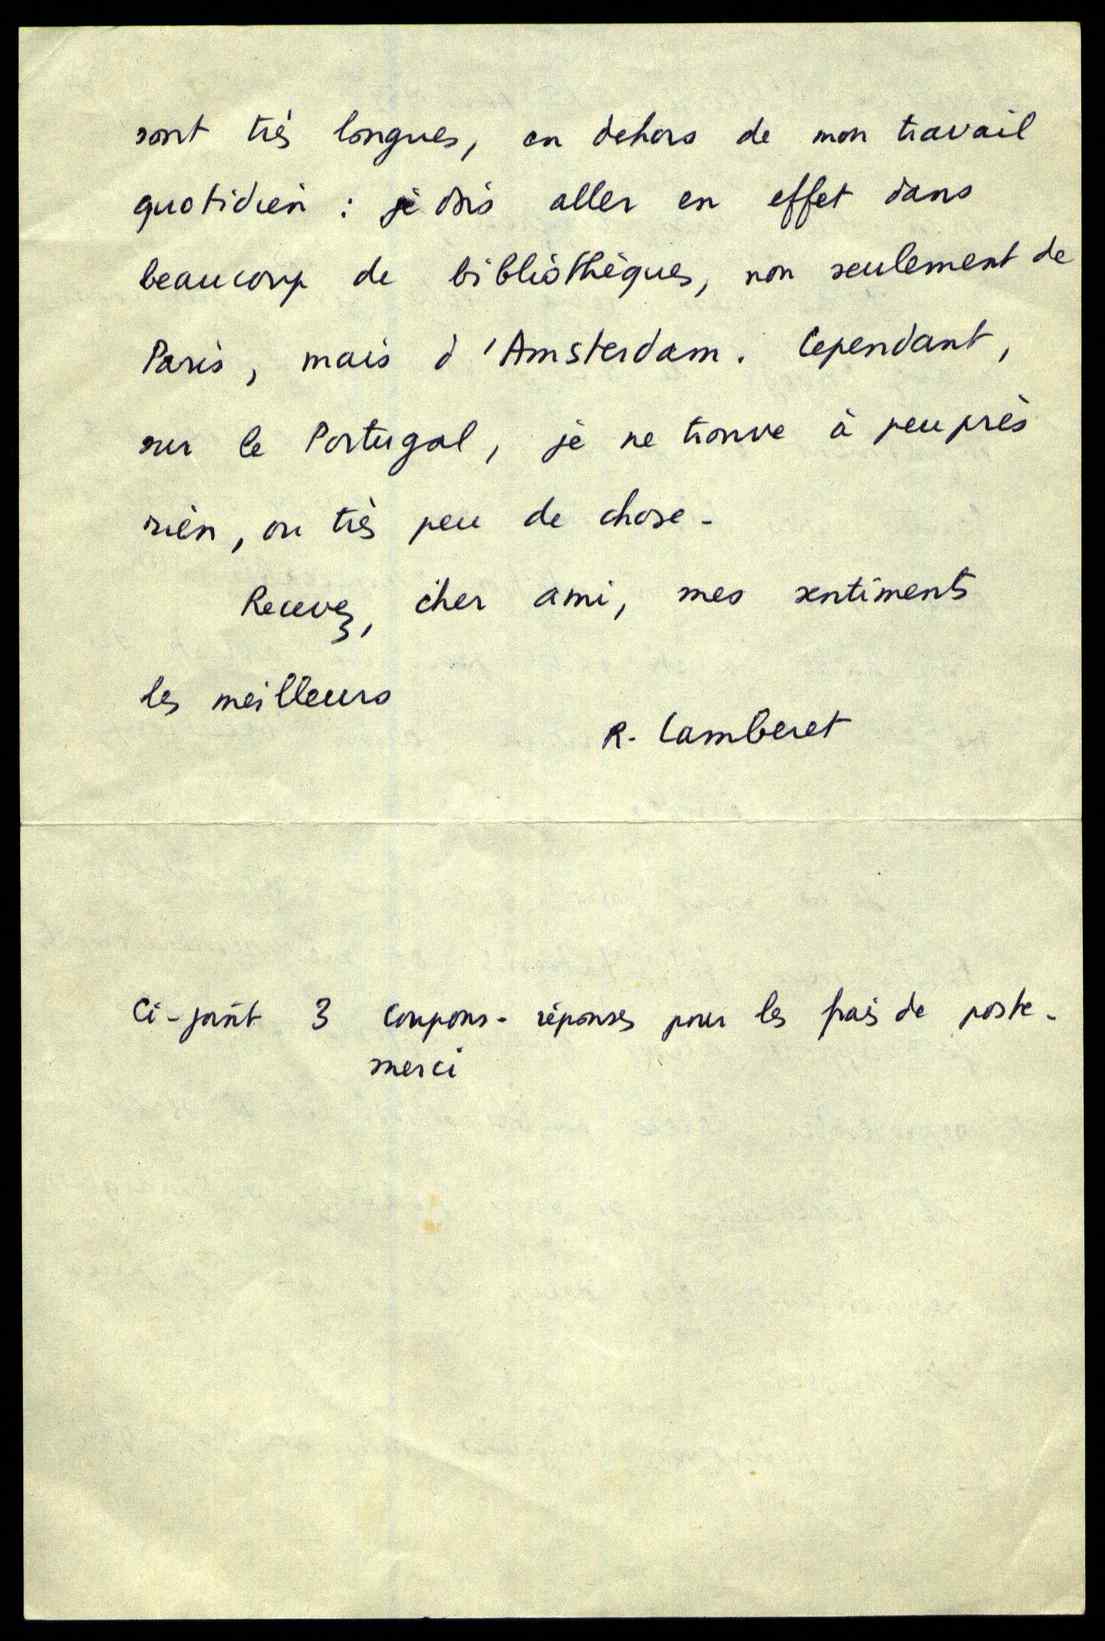 sont très longues, en dehors de mon travail
quotidien : je dois aller en effet dans
beaucoup de bibliothèques, non seulement de
Paris, mais d'Amsterdam. Cependant,
sur le Portugal, je ne trouve à peu près
rien, ou très peu de chose -
Recevez, cher ami, mes sentiments
les meilleurs
R. Lamberet
Ci-joint 3 coupons-réponses pour les frais de poste -
merci